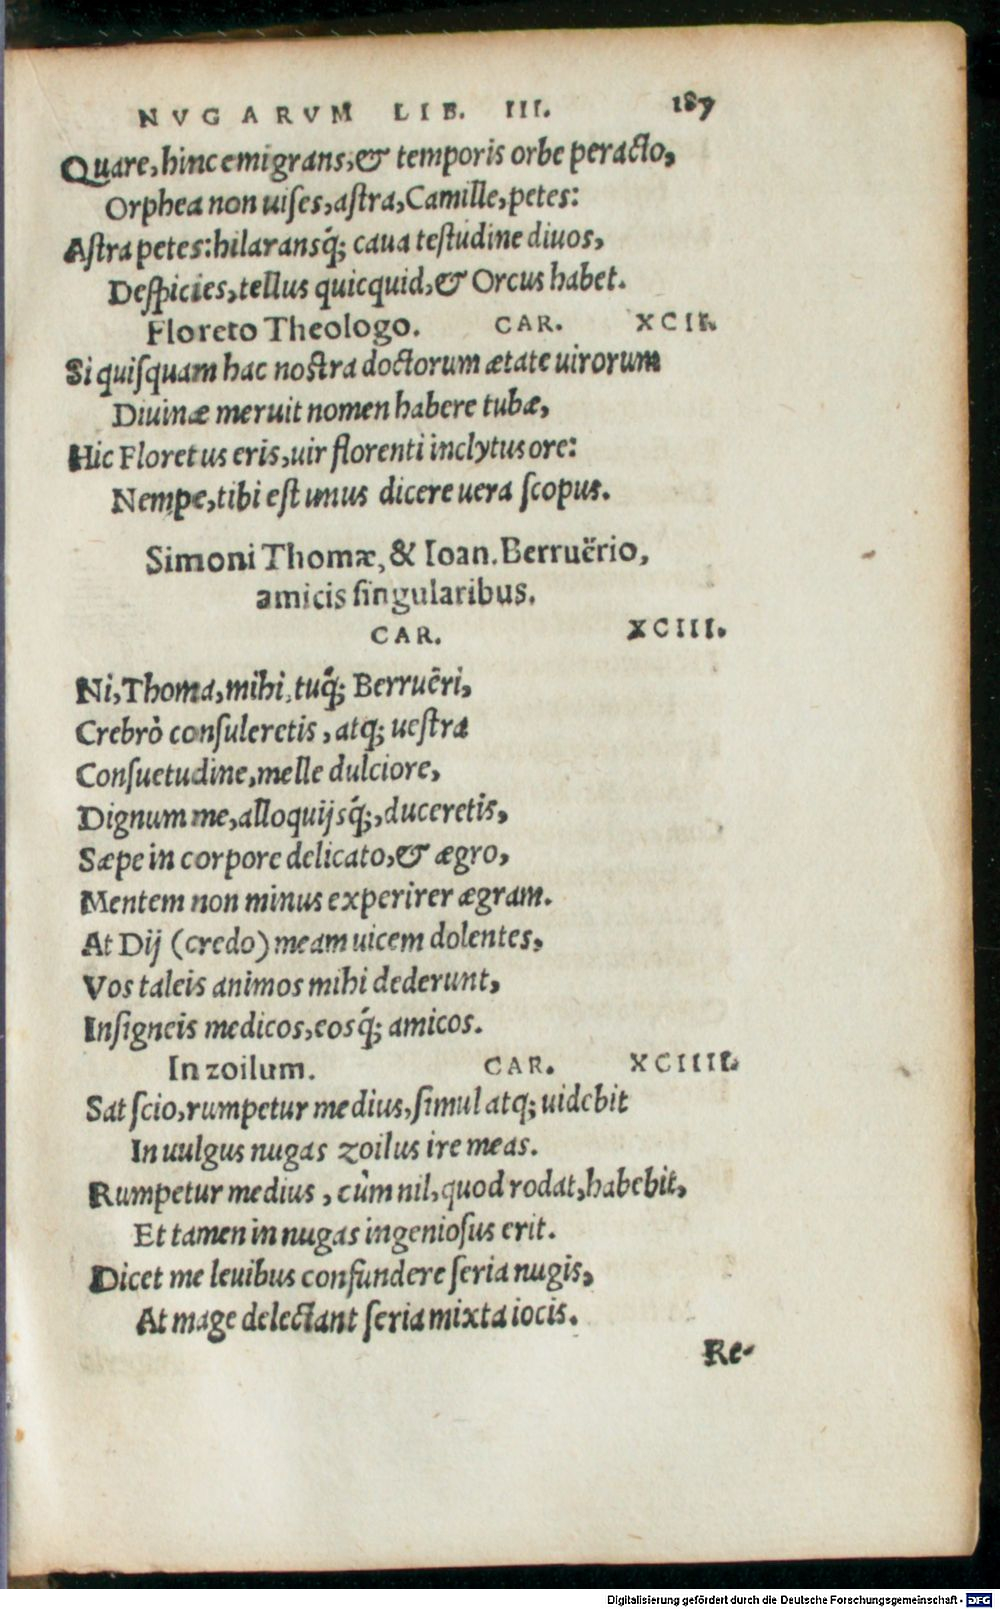 NVGARVM LIB. III. 187
Quare, hinc emigrans, & temporis orbe peracto,
Orphea non uises, astra, Camille, petes:
Astra petes: hilaransq́; caua testudine diuos,
Despicies, tellus quicquid, & Orcus habet.
Floreto Theologo. CAR. XCII.
Si quisquam hac nostra doctorum ætate uirorum
Diuinæ meruit nomen habere tubæ,
Hic Floretus eris, uir florenti inclytus ore:
Nempe, tibi est unus dicere uera scopus.
Simoni Thomæ, & Ioan. Berruërio,
amicis singularibus.
CAR. XCIII.
Ni, Thoma, mihi, tuq́; Berruëri,
Crebrò consuleretis, atq; uestra
Consuetudine, melle dulciore,
Dignum me, alloquijsq́;, duceretis,
Sæpe in corpore delicato, & ægro,
Mentem non minus experirer ægram.
At Dij (credo) meam uicem dolentes,
Vos taleis animos mihi dederunt,
Insigneis medicos, eosq́; amicos.
In zoilum. CAR. XCIIII.
Sat scio, rumpetur medius, simul atq; uidebit
In uulgus nugas zoilus ire meas.
Rumpetur medius, cùm nil, quod rodat, habebit,
Et tamen in nugas ingeniosus erit.
Dicet me leuibus confundere seria nugis,
At mage delectant seria mixta iocis.
Re-
Digitalisierung gefördert durch die Deutsche Forschungsgemeinschaft - DFG